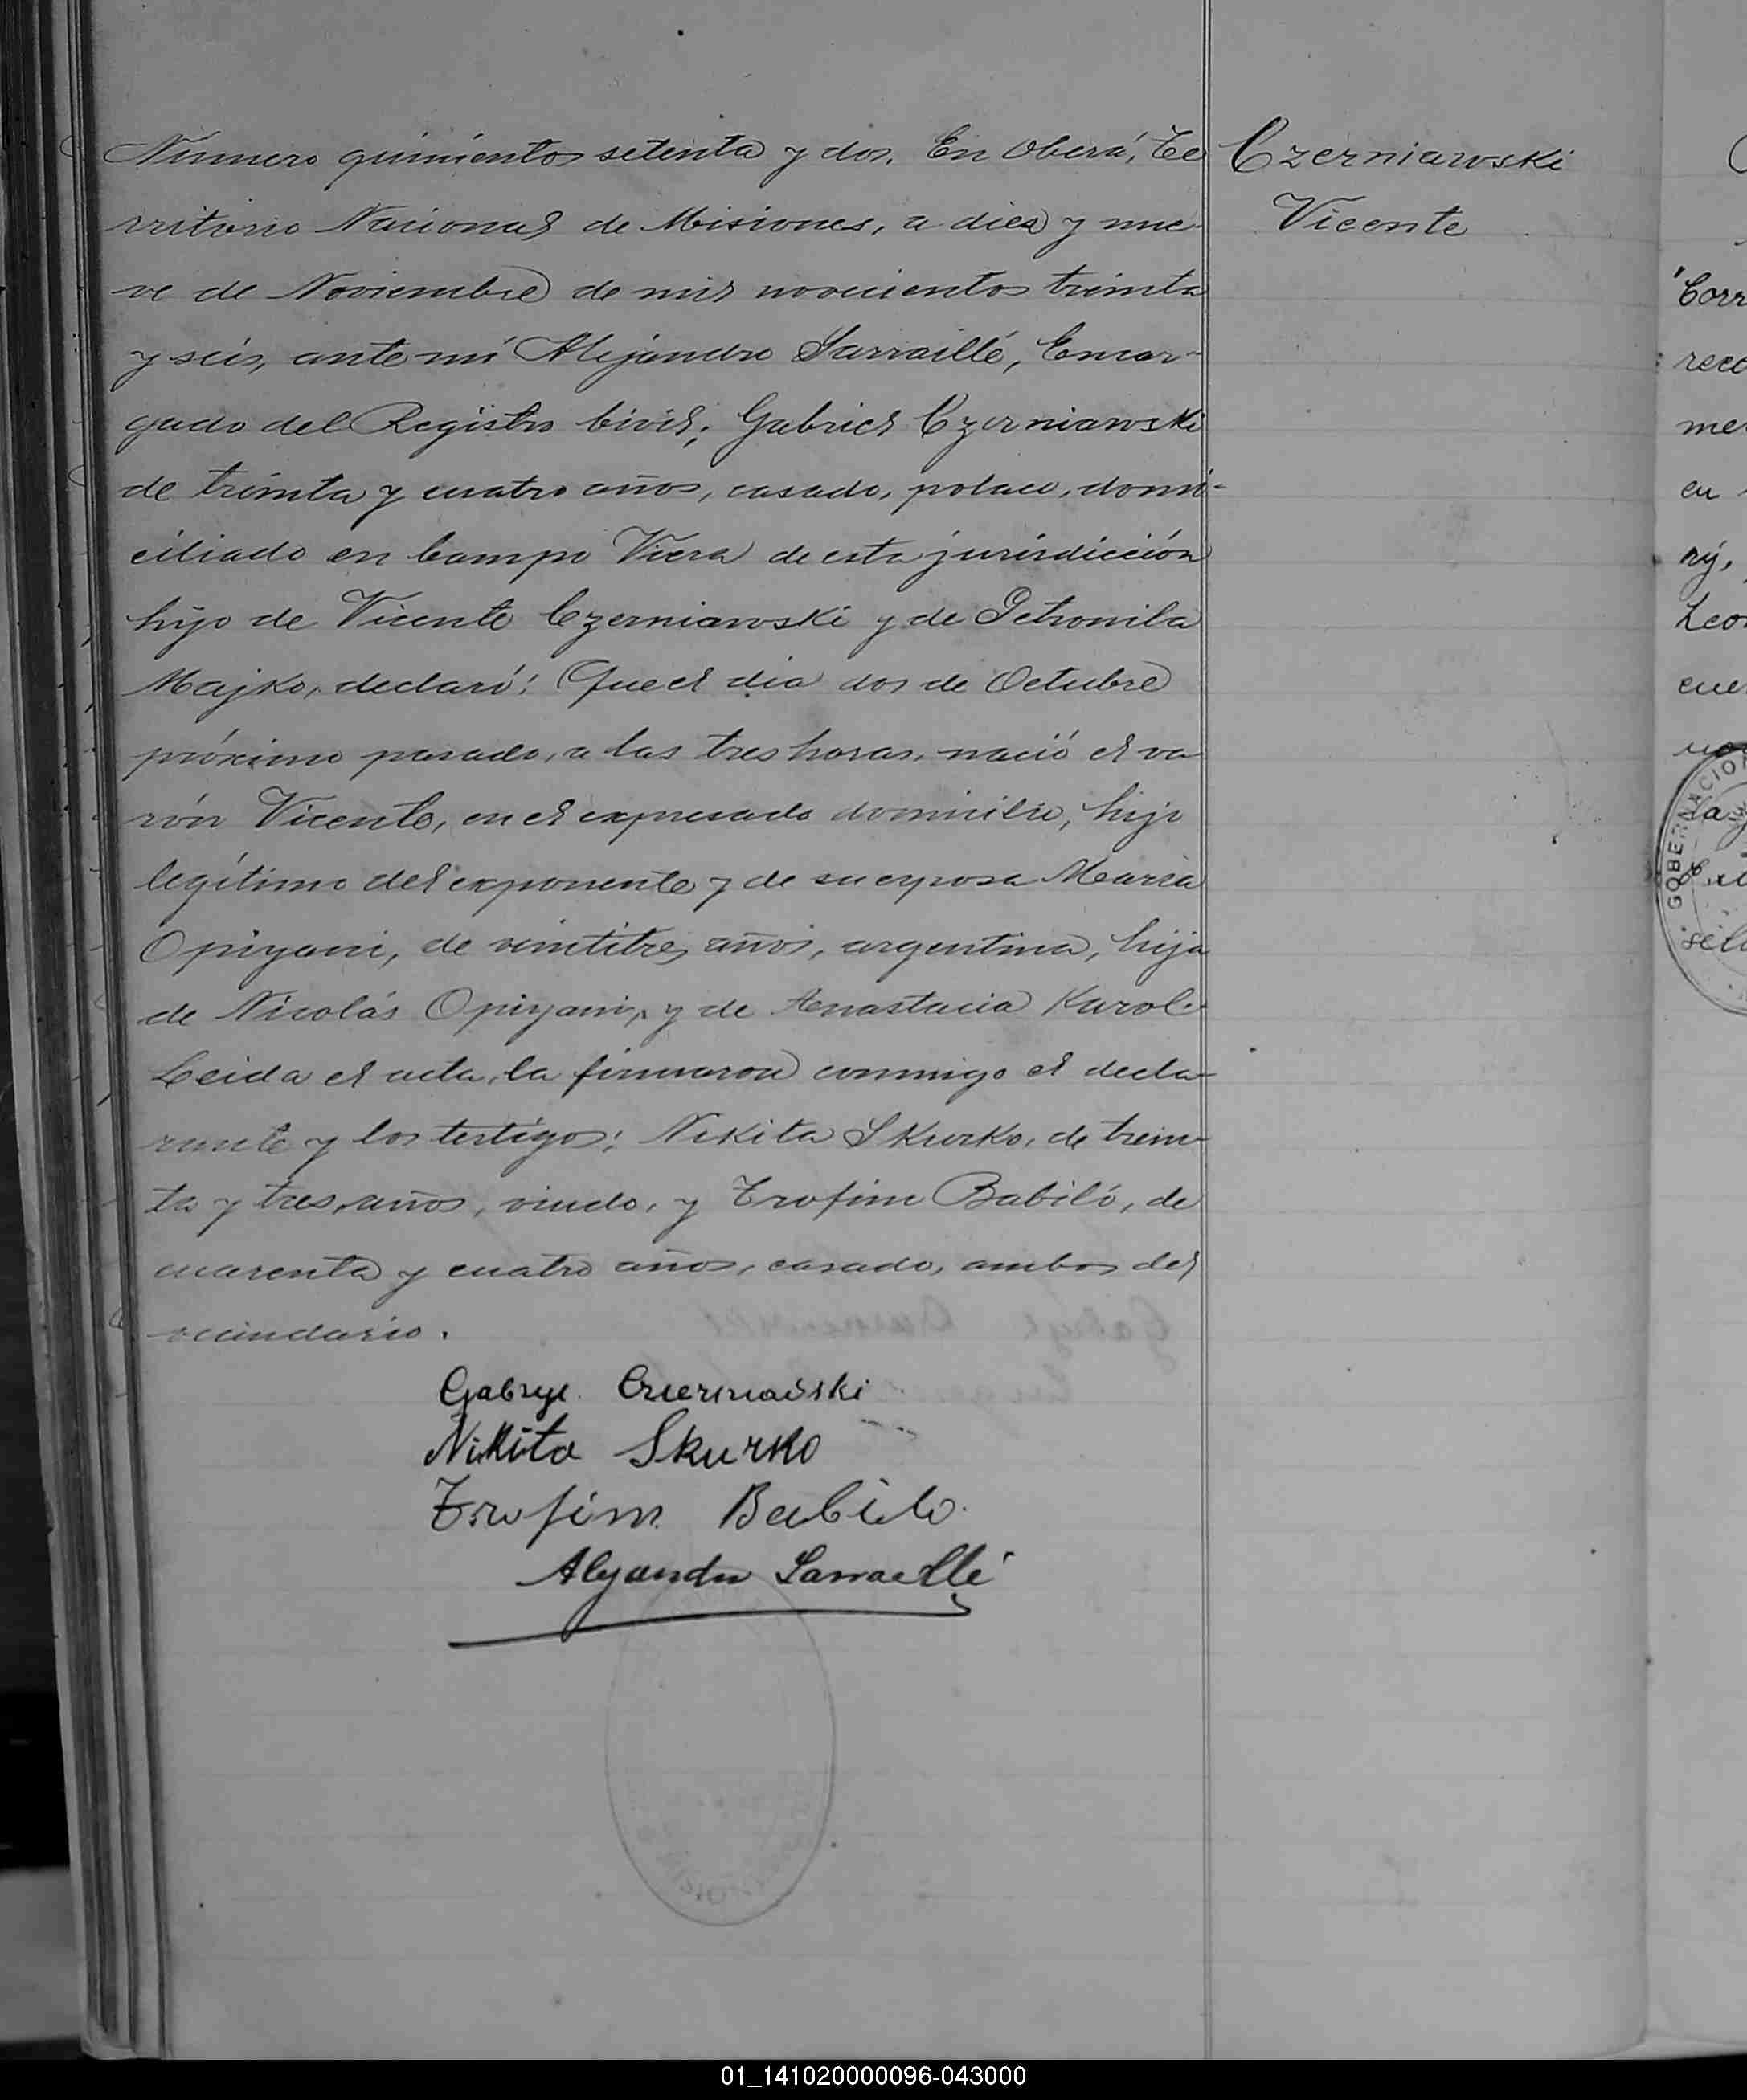 Número quinientos setenta y dos. En Oberá, Te
rritorio Nacional de Misiones, a diez y nue-
ve de Noviembre de mil novecientos treinta
y seis, ante mí Alejandro Sarraillé, Encar-
gado del Registro Civil; Gabriel Czerniawski
de treinta y cuatro años, casado, polaco, domi-
ciliado en Campo Viera de esta jurisdicción
hijo de Vicente Czerniawski y de Petronila
Majko, declaró: Que el día dos de Octubre
próximo pasado, a las tres horas, nació el va
rón Vicente, en el expresado domicilio, hijo
legítimo del exponente y de su esposa María
Opiyani, de veintitres años, argentina, hija
de Nicolás Opiyani, y de Anastacia Karol.
Leida el acta, la firmaron conmigo el decla-
rante y los testigos: Nikita Skurko, de trein-
ta y tres años, viudo, y Trofim Babiló, de
cuarenta y cuatro años, casado, ambos del
vecindario.
Gabrye Czerniawski
Nikita Skurko
Trofim Babilo.
Alejandro Sarraillé
Czerniawski
Vicente
Corr
reco
me
en
ry,
Leo
cue
la y
GOBERNACION
01_141020000096-043000